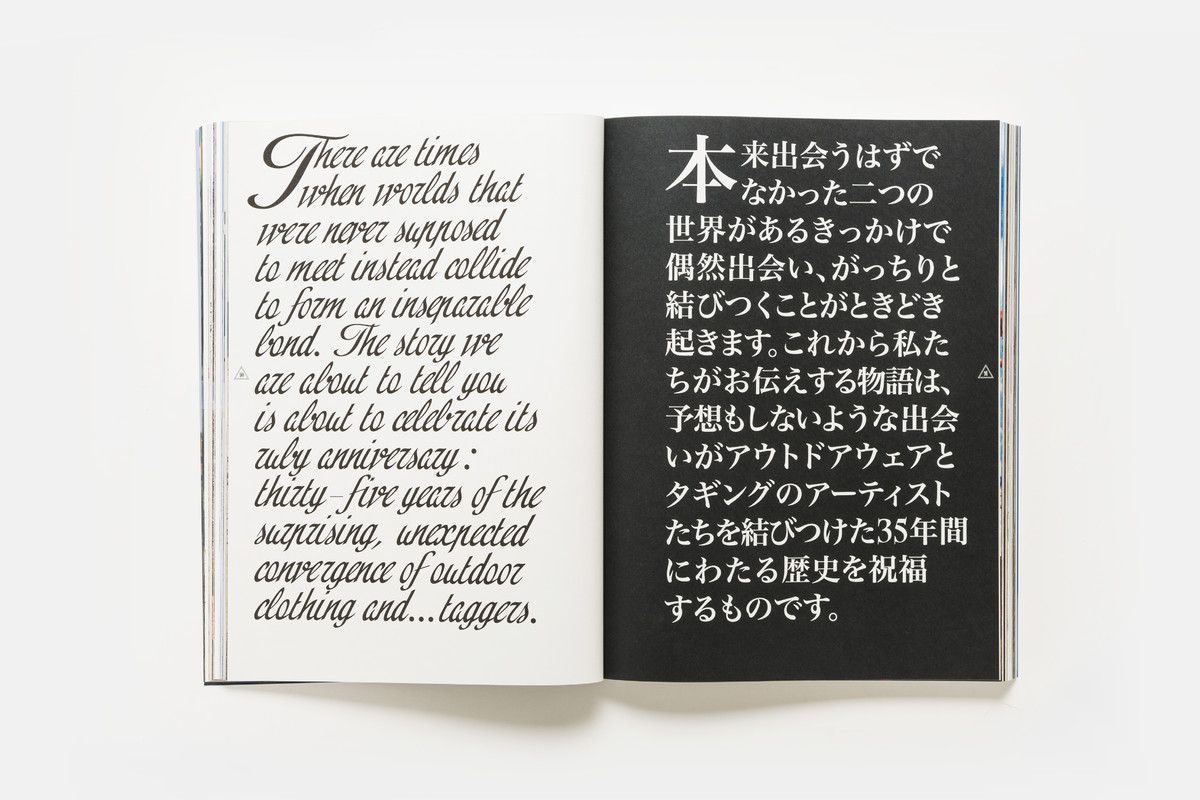 There are times
when worlds that
were never supposed
to meet instead collide
to form an inseparable
bond. The story we
are about to tell you
is about to celebrate its
ruby anniversary:
thirty-five years of the
surprising, unexpected
convergence of outdoor
clothing and...taggers.
本来出会うはずで
なかった二つの
世界があるきっかけで
偶然出会い、がっちりと
結びつくことがときどき
起きます。これから私た
ちがお伝えする物語は、
予想もしないような出会
いがアウトドアウェアと
タギングのアーティスト
たちを結びつけた35年間
にわたる歴史を祝福
するものです。